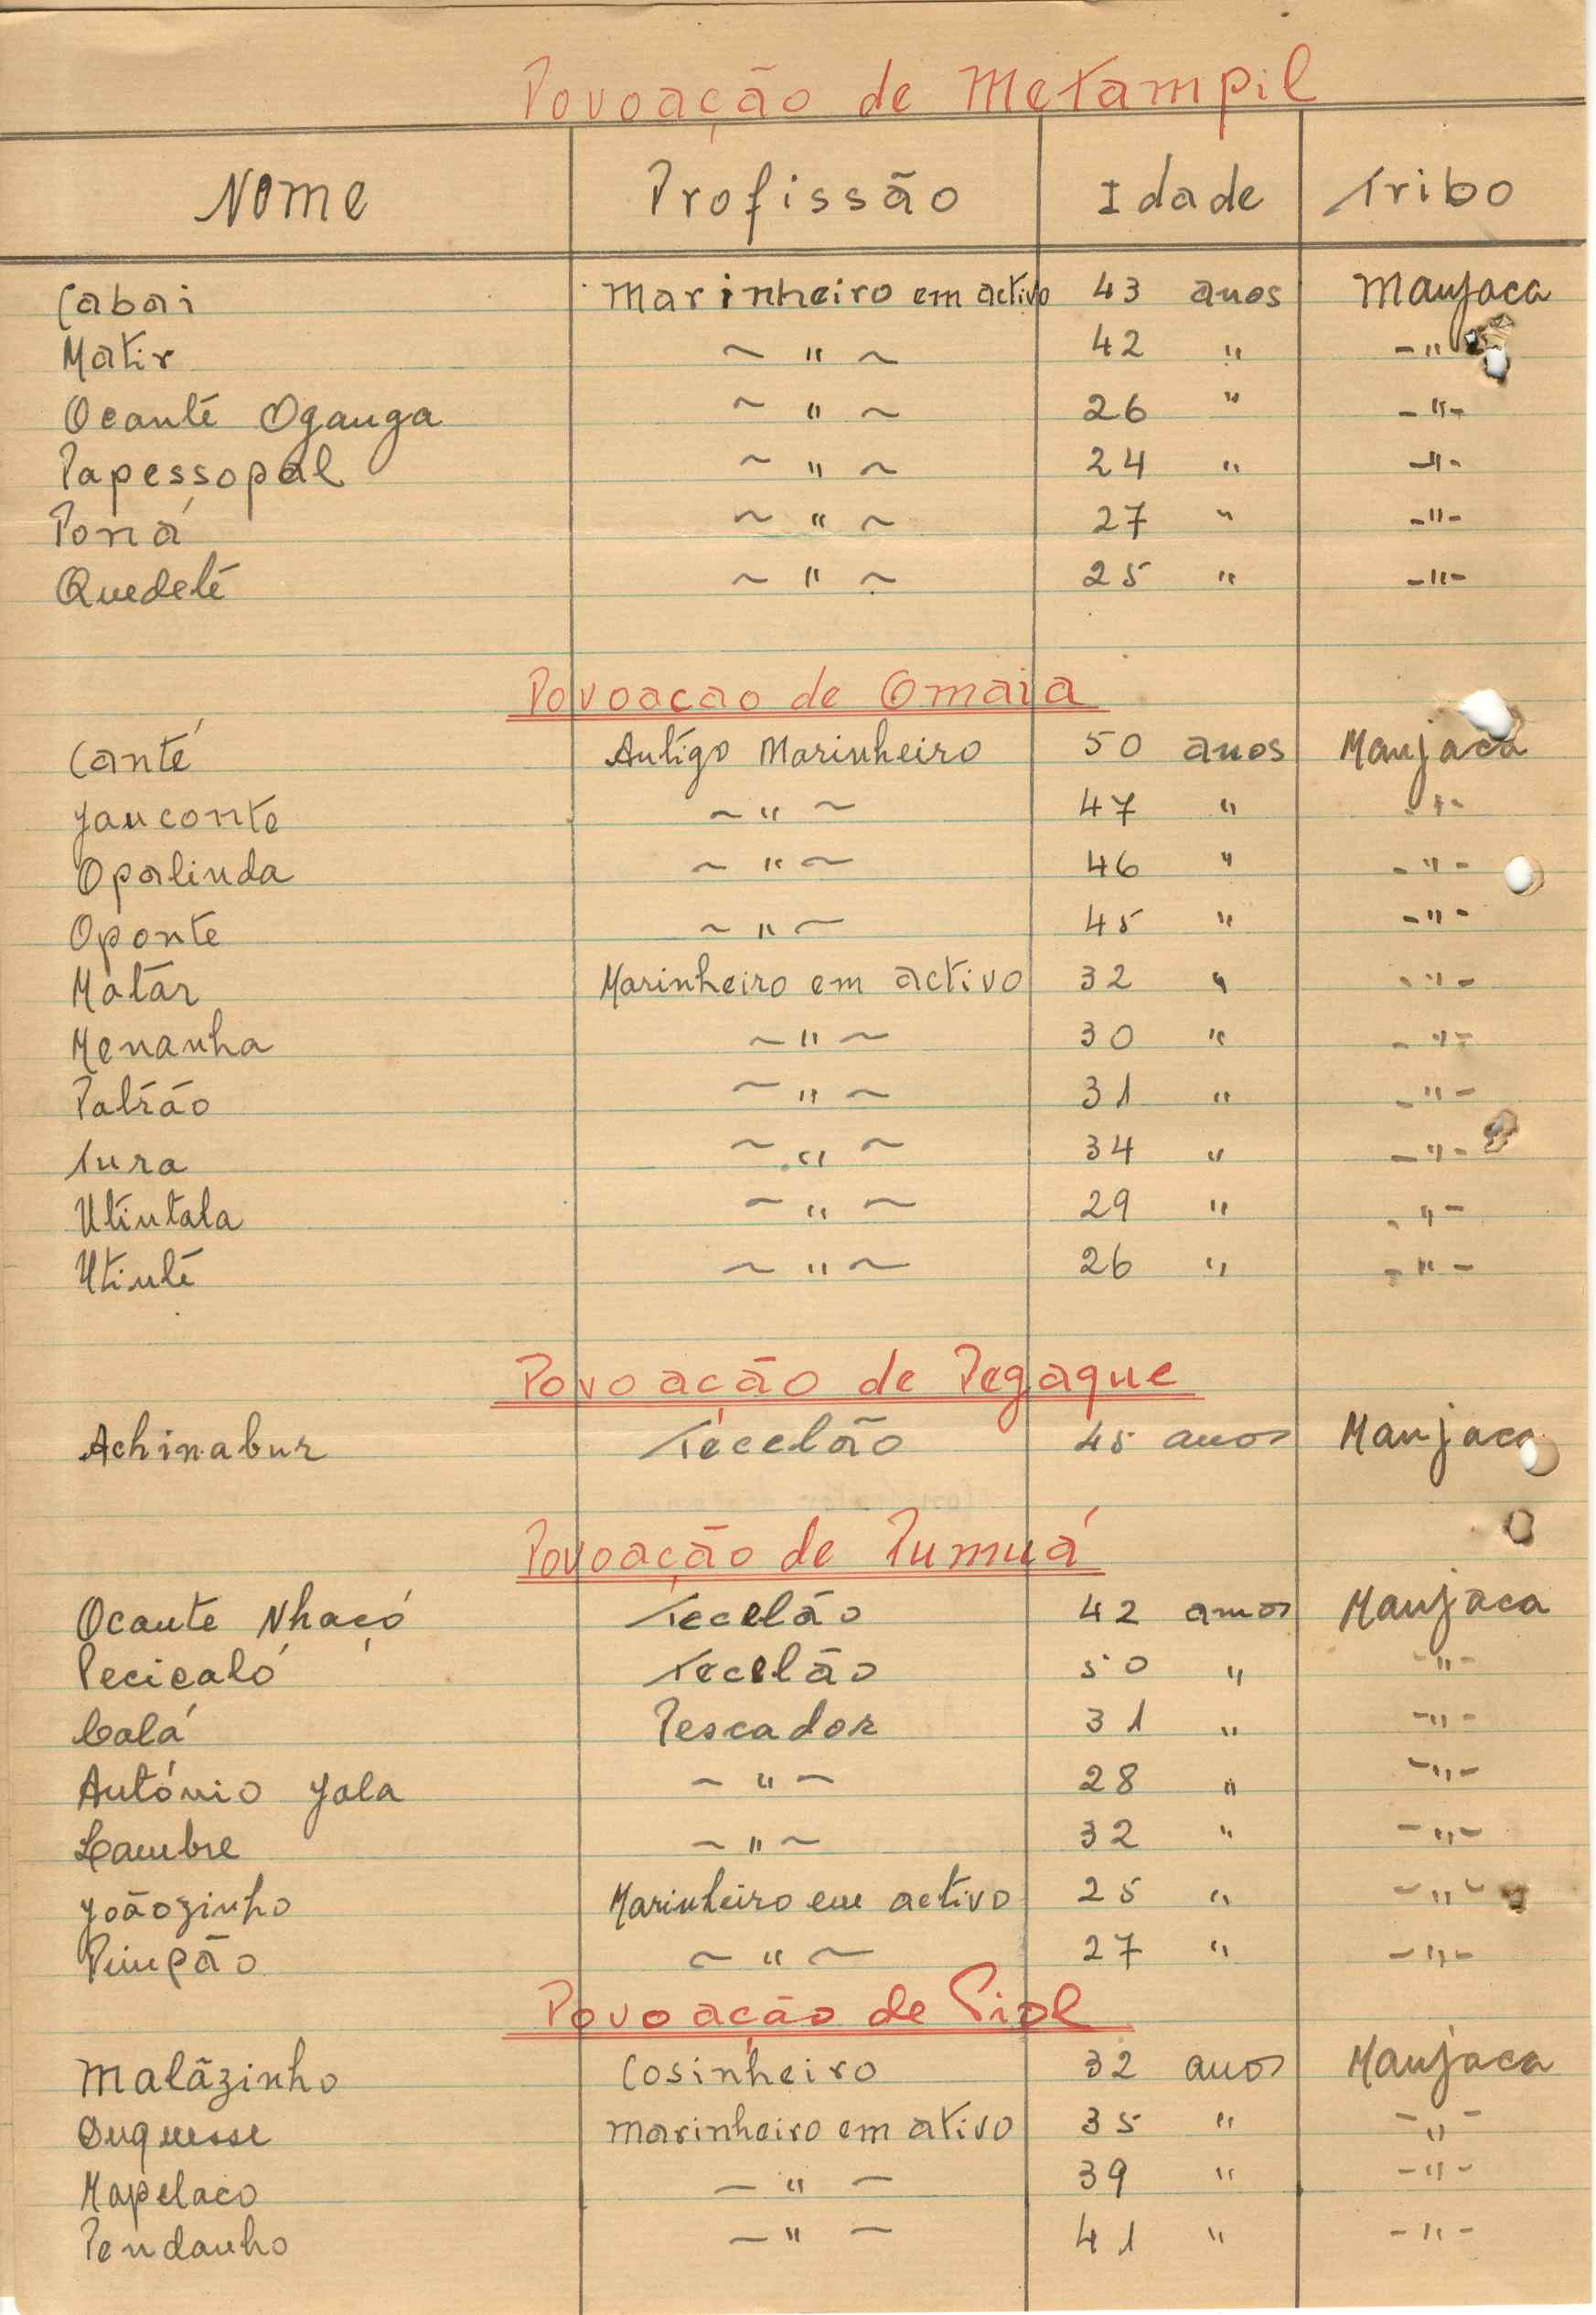 Povoação de Metampil
Nome Profissão Idade Tribo
Cabai Marinheiro em activo 43 anos Manjaca
Matir ~ " ~ 42 " - " -
Ocanté Oganga ~ " ~ 26 " - " -
Papessopal ~ " ~ 24 " - " -
Poná ~ " ~ 27 " - " -
Quedeté ~ " ~ 25 " - " -
Povoacao de Omaia
Canté Antigo Marinheiro 50 anos Manjaca
Jauconte ~ " ~ 47 " - " -
Opalinda ~ " ~ 46 " - " -
Oponte ~ " ~ 45 " - " -
Matar Marinheiro em activo 32 " - " -
Menanha ~ " ~ 30 " - " -
Patrão ~ " ~ 31 " - " -
Tura ~ " ~ 34 " - " -
Utintala ~ " ~ 29 " - " -
Utinté ~ " ~ 26 " - " -
Povoação de Pegaque
Achinabur Tecelão 45 anos Manjaca
Povoação de Pumuá
Ocante Nhacó Tecelão 42 anos Manjaca
Peçicaló Tecelão 50 " - " -
Calá Pescador 31 " - " -
António Jala - " - 28 " - " -
Lambre ~ " ~ 32 " - " -
Joãozinho Marinheiro em activo 25 " - " -
Pimpão ~ " ~ 27 " - " -
Povoação de Piol
Malãzinho Cosinheiro 32 anos Manjaca
Ouquesse Marinheiro em ativo 35 " - " -
Mapelaco - " - 39 " - " -
Pendanho - " - 41 " - " -